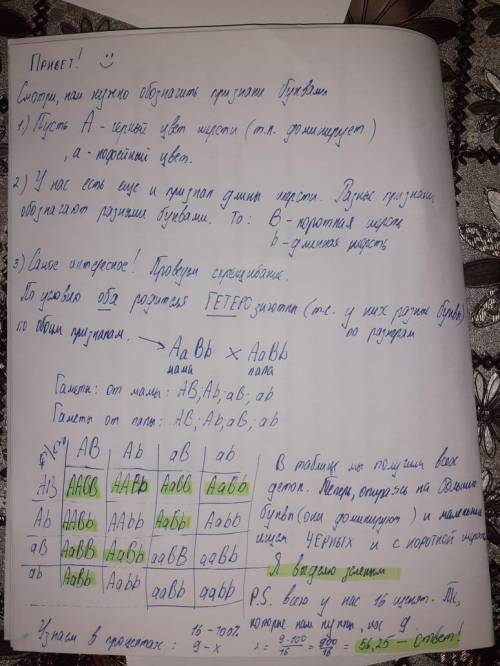 Привет! :)
Смотри, нам нужно обозначить признаки буквами
1.) Пусть А - чёрный цвет шерсти (т.к. доминирует)
, а - кофейный цвет.
2) У нас есть еще и признак длины шерсти. Разные признаки
обозначают разными буквами. То: B - короткая шерсть
b - длинная шерсть
3) Самое интересное! Проведем скрещивание.
По условию оба родителя ГЕТЕРОзиготны (т.е. у них разные буквы)
по обоим признакам. по размерам
AaBb × AaBb
мама папа
Гаметы: от мамы: AB; Ab; aB; ab
Гаметы от папы: AB; Ab; aB; ab
♀ ♂ AB Ab aB ab
AB AABB AABb AaBB AaBb
Ab AABb AAbb AaBb Aabb
aB AaBB AaBb aaBB aaBb
ab AaBb Aabb aaBb aabb
В таблице мы получили всех
деток. Теперь, опираясь на большие
буквы (они доминируют) и маленькие
ищем ЧЕРНЫХ и с короткой шерстью
Я выделю зеленым
P.S. всего у нас 16 щенят. Тех,
которые нам нужны, нас 9.
Узнаем в процентах: 16 - 100%
9 - x
x = 9·100/16 = 900/16 = 56,25 - ответ!